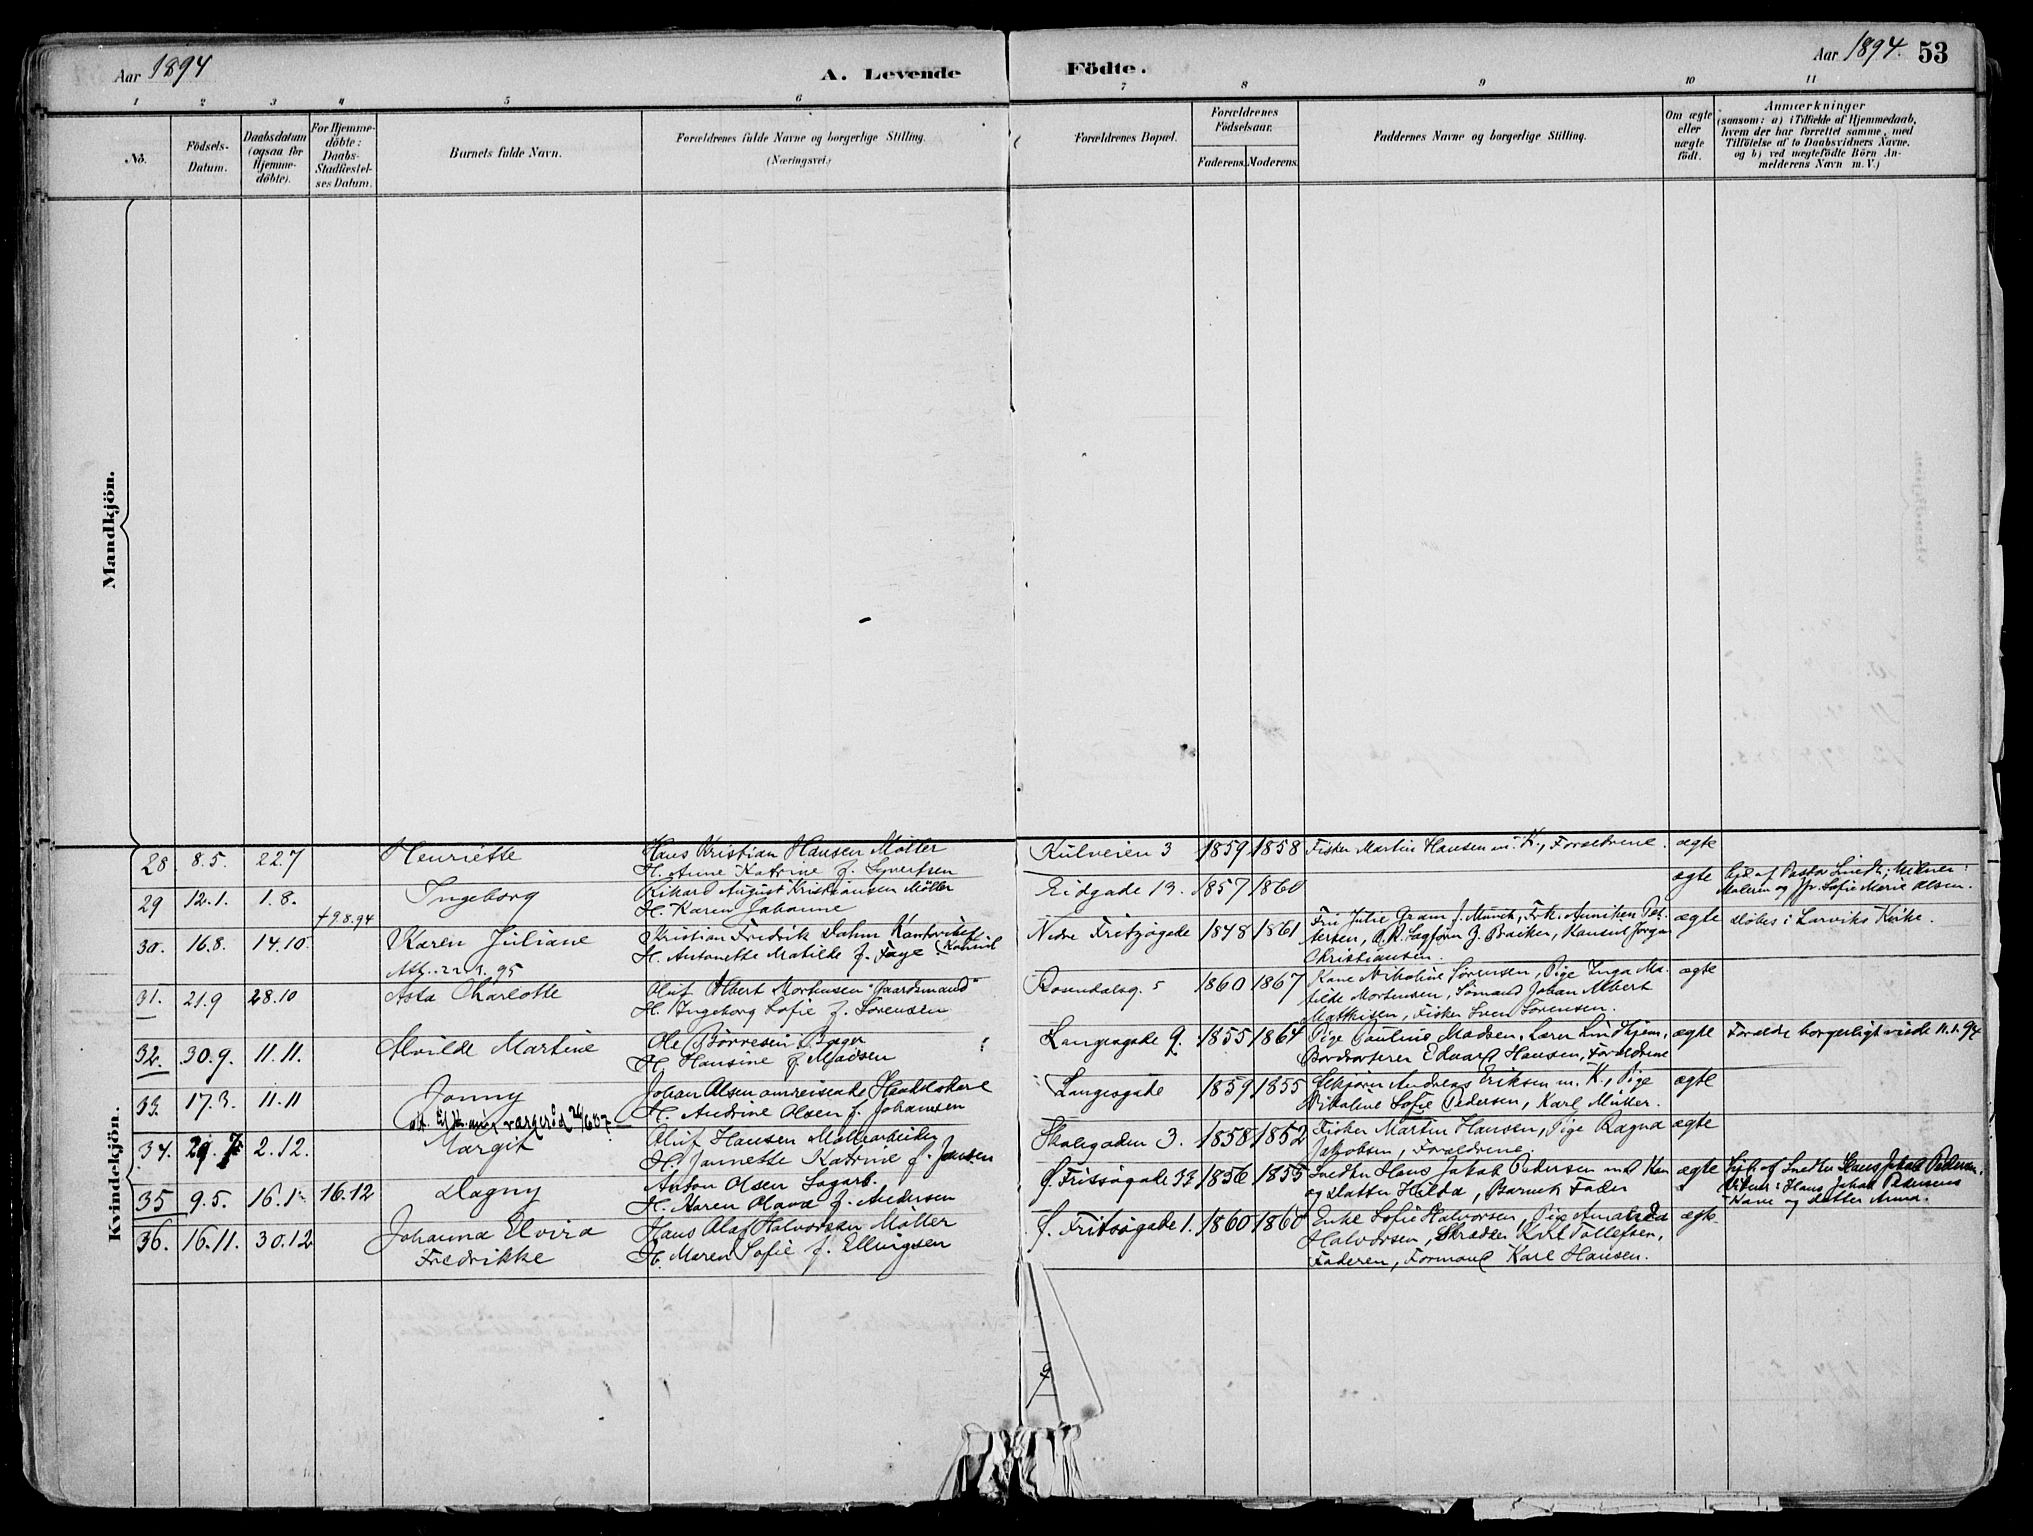 Aar 1894
A. Levende
Födte.
Aar 1894. 53
1 2 3 4 5 6 7 8 9 10 11
No.
Födsels-
Datum.
Daabsdatum
(ogsaa for
Hjemme-
döbte).
For Hjemme-
döbte:
Daabs-
Stadfæstel-
ses Datum.
Barnets fulde Navn.
Forældrenes fulde Navne og borgerlige Stilling.
(Næringsvei.)
Forældrenes Bopæl.
Forældrenes
Födselsaar.
Faderens. Moderens.
Faddernes Navne og borgerlige Stilling.
Om ægte
eller
uægte
födt.
Anmærkninger
(saasom: a) i Tilfælde af Hjemmedaab,
hvem der har forrettet samme, med
Tilföielse af to Daabsvidners Navne,
og b) ved uægtefödte Börn An-
melderens Navn m. V.)
Mandkjön.
Kvindekjön.
28 8.5. 22.7 Henriette Hans Kristian Hansen Møller
H. Anne Katrine f. Syvertsen
Kulveien 3 1859 1858 Fisker Martin Hansen m. K., Forældrene. ægte
29 12.1. 1.8. Ingeborg Rikard August Kristiansen Møller
H. Karen Johanne
Eidgade 13. 1857 1860 ægte Hjd. af Pastor Lindh; Vidner:
Malerm og Jfr. Sofie Marie Olsen.
+ 9.8.94
30. 16.8. 14.10. Karen Juliane
Att. 22.3.95
Kristian Fredrik Dahm
H. Antonette Matilde f. Faye. Konsul
Nedre Fritzøgade 1848 1861 Fru Julie Gram f. Munch, Frk. Anniken Pet-
tersen, O.R. Sagfører J. Baiker, Konsul Jørgen
Christiansen.
ægte døbes i Larviks Kirke.
31. 21.9 28.10 Asta Charlotte Oluf Albert Mortensen "Gaardsmand"
H. Ingeborg Sofie f. Sørensen
Rosendalsg. 5 1860 1867 Kone Nikoline Sørensen, Pige Inga Ma-
tilde Mortensen, Sømand Johan Albert
Mathisen, Fisker Sven Sørensen.
ægte
32. 30.9. 11.11. Alvilde Martine Ole Børresen Bager
H. Hansine f. Madsen
Langesgade 9. 1855 1864 Pige Pauline Madsen, Lærer Lindhjem,
Bordsorterer Edvard Hansen, Forældrene
ægte Forældre borgerligt viede 11.1.94
33. 17.3. 11.11 Jonny Johan Olsen omreisende Handelskarl
H. Andrine Olsen f. Johansen
Langesgade 1859 1855 Andreas Eriksen m. K., Pige
Nikoline Sofie Pedersen, Karl Müller.
ægte
34. 29. 2.12. Margit Oluf Hansen Møllearbeider
H. Jannette Katrine f. Jansen
Skolegaden 3. 1858 1852 Fisker Martin Hansen, Pige Ragna
Jakobsen, Forældrene.
ægte
35 9.5. 16.1 16.12 Dagny Anton Olsen Sagarb.
H. Karen Olava f. Andersen
Ø. Fritsøgade 33 1856 1855 Snedker Hans Jakob Pedersen med Kone
og Datter Hilda, Barnets Fader
ægte Hjd. af Snedker Hans Jakob Pedersen.
Vidner: Hans Jakob Pedersens
Kone og Datter Anna.
36. 16.11. 30.12 Johanna Elvira
Fredrikke
Hans Olaf Halvorsen Møller
H. Maren Sofie f. Ellingsen
Ø. Fritsøgade 1. 1860 1860 Enke Sofie Halvorsen, Pige Amanda
Halvorsen, Skrædder Karl Tollefsen,
Faderen, Formand Karl Hansen.
ægte